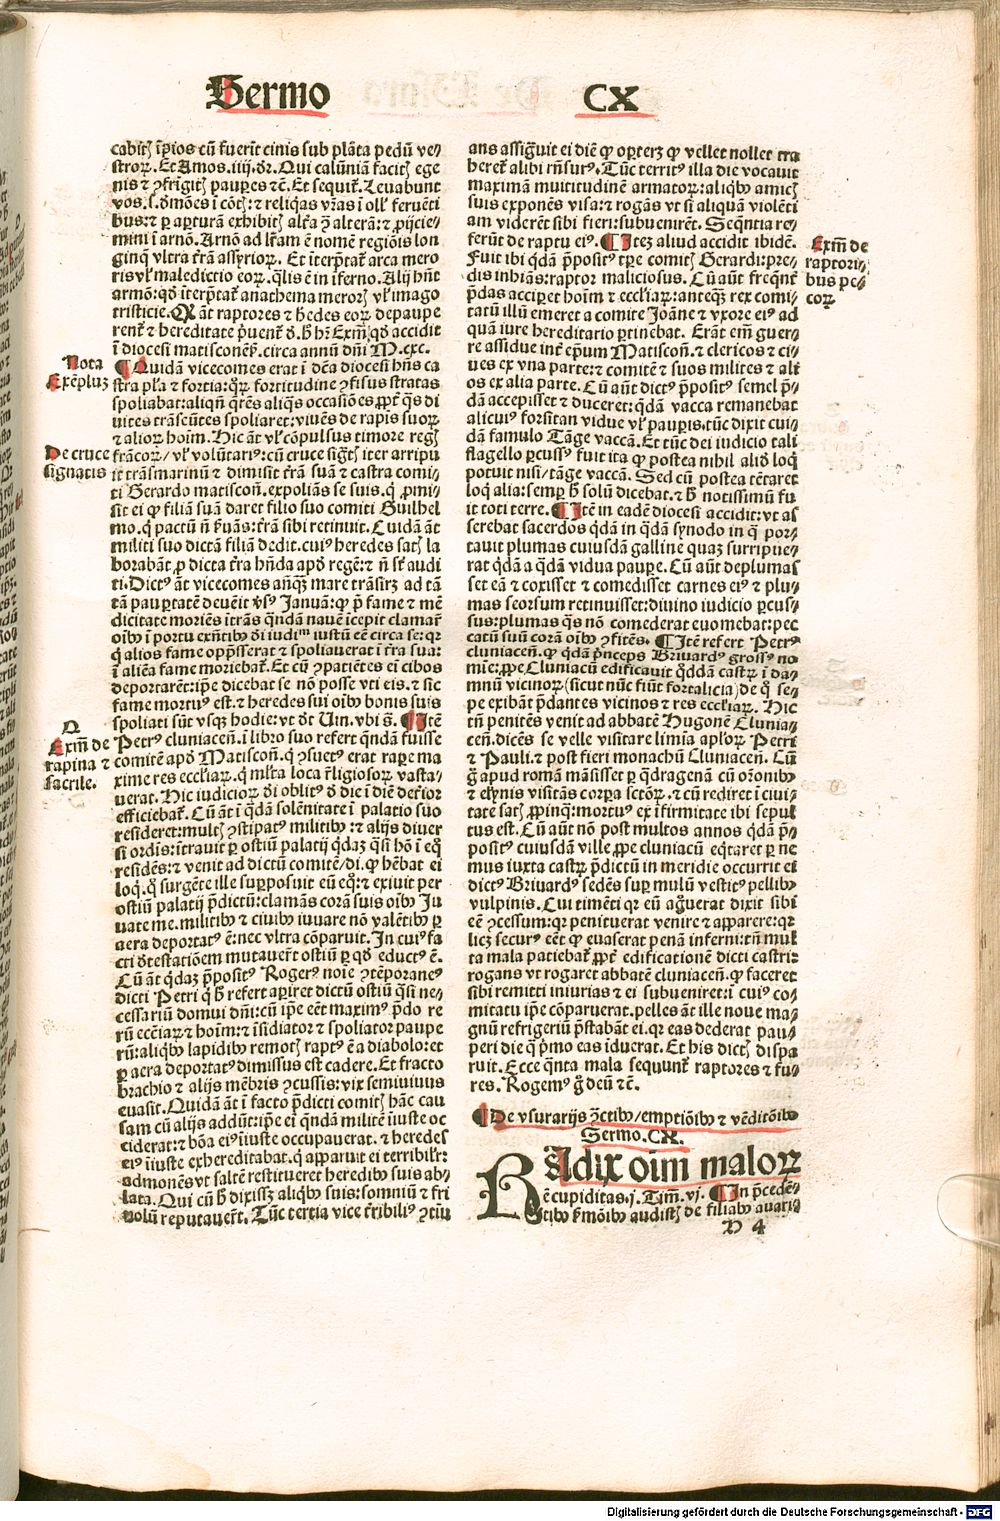 Sermo CX
cabitꝭ īpios cū fuerīt cinis sub plāta pedū ve⸗
stroꝝ. Et Amos. iiij. dr̄. Qui calūniā facitꝭ ege
nis ⁊ ꝯfrigitꝭ paupes ⁊c̄. Et sequit̄. Leuabunt
vos .s. dmōes i cōtꝭ: ⁊ reliqas vr̄as ī oll' feruēti
bus: ⁊ ꝑ aꝑturā exhibitꝭ alt̄a ꝫ alterā: ⁊ ꝓijcie⸗
mini ī armō. Armō ad lr̄am ē nomē regiōis lon
ginq̄ vltra t̄rā assyrioꝝ. Et īterp̄tat̄ arca mero
ris vꝉ maledictio eoꝝ. q̄lis ē in īferno. Alij hn̄t
armō: qd īterp̄tat̄ anathema merorꝭ vꝉ imago
tristicie. Ꝙ āt raptores ⁊ hedes eoꝝ depaupe
rent̄ ⁊ hereditate p̄uent̄ d. h hꝫ Exm̄ qd accidit
ī diocesi matisconēn̄. circa annū dn̄i M.cxc.
Nota
Exēpluꝫ
¶ Quidā vicecomes erat ī dc̄a diocesi hn̄s ca
stra pl̄a ⁊ fortia: q̄ꝝ fortitudine ꝯfisus stratas
spoliabat: aliqn̄ q̄rēs aliq̄s occasiōes ꝓpt̄ q̄s di
uites trāseūtes spoliaret: viuēs de rapis suoꝝ
⁊ alioꝝ hoim̄. Hic āt vꝉ cōpulsus timore regꝭ
De cruce
signatis
frācoꝝ/ vꝉ volūtari⁹: cū cruce sigtꝭ iter arripu
it trāsmarinū ⁊ dimisit t̄rā suā ⁊ castra comi⸗
ti Gerardo matiscoñ. expoliās se suis. q̄ ꝓmi⸗
sit ei ꝙ filiā suā daret filio suo comiti Guilhel
mo. q̄ pactū n̄ fuās: t̄rā sibi retinuit. Cuidā āt
militi suo dictā filiā dedit. cui⁹ heredes satꝭ la
borabāt ꝓ dicta t̄ra hn̄da apd regē: ⁊ n̄ st̄ audi
ti. Dict⁹ āt vicecomes anq̄ꝫ mare trāsirꝫ ad tā
tā paupertatē deuēit vs⁹ Januā: ꝙ p̄ fame ⁊ mē
dicitate moriēs ītrās q̄ndā nauē īcepit clamar̄
oībꝫ ī portu exn̄tibꝫ di iudiᵐ iustū eē circa se: qꝛ
q̄ alios fame opp̄sserat ⁊ spoliauerat ī t̄ra sua:
ī aliēa fame moriebat̄. Et cū ꝯpatiētes ei cibos
deportarēt: ip̄e dicebat se nō posse vti eis. ⁊ sic
fame mortu⁹ est. ⁊ heredes sui oībꝫ bonis suis
spoliati sūt vsqꝫ hodie: vt dt Uin. vbi s̄. ¶ Itē
Q
Exm̄ de
rapina ⁊
sacrile.
Petr⁹ cluniaceñ. ī libro suo refert q̄ndā fuisse
comitē apd Matiscoñ. q̄ ꝯsuet⁹ erat rape ma
xime res ecclīaꝝ. q̄ ml̄ta loca r̄ligiosoꝝ vasta⸗
uerat. Hic iudicioꝝ di oblit⁹ d die ī diē det̄ior
efficiebat̄. Cū āt ī q̄dā solēnitate ī palatio suo
resideret: multꝭ ꝯstipat⁹ militibꝫ: ⁊ alijs diuer
si ordīs: ītrauit ꝑ ostiū palatij q̄daꝫ q̄si hō ī eq̄
residēs: ⁊ venit ad dictū comitē/ di. ꝙ hēbat ei
loq̄. q̄ surgēte ille suꝑposuit eū eq̄: ⁊ exiuit per
ostiū palatij p̄dictū: clamās corā suis oībꝫ Ju
uate me. militibꝫ ⁊ ciuibꝫ iuuare nō valētibꝫ ꝑ
aera deportat⁹ ē: nec vltra cōparuit. In cui⁹ fa
cti dtestatiōem mutauer̄t ostiū ꝑ qd educt⁹ ē.
Cū āt q̄daꝫ p̄posit⁹ Roger⁹ noīe ꝯtēporane⁹
dicti Petri q̄ h refert apiret dictū ostiū q̄si ne⸗
cessariū domui dn̄i: cū ip̄e eēt maxim⁹ p̄do re
rū ecclīaꝝ ⁊ hoim̄: ⁊ īsidiator ⁊ spoliator paupe
rū: aliqbꝫ lapidibꝫ remotꝭ rapt⁹ ē a diabolo: et
ꝑ aera deportat⁹ dimissus est cadere. Et fracto
brachio ⁊ alijs mēbris ꝯcussis: vix semiuiuus
euasit. Quidā āt ī facto p̄dicti comitꝭ hāc cau
sam cū alijs addūt: ip̄e ei q̄ndā militē iiuste oc
ciderat: ⁊ bōa ei⁹ iiuste occupauerat. ⁊ heredes
ei⁹ iiuste exhereditabat. q̄ apparuit ei terribilr̄:
admonēs vt saltē restitueret heredibꝫ suis ab⸗
lata. Qui cū h dixissꝫ aliqbꝫ suis: somniū ⁊ fri
uolū reputauer̄t. Tūc tertia vice t̄ribili⁹ ꝯtū
ans assig̅uit ei diē ꝙ oꝑterꝫ ꝙ vellet nollet tra
heret̄ alibi rn̄sur⁹. Tūc territ⁹ illa die vocauit
maximā multitudinē armatoꝝ: aliqbꝫ amicꝭ
suis exponēs visa: ⁊ rogās vt si aliquā violēti
am viderēt sibi fieri: subuenirēt. Seqn̄tia re⸗
ferūt de raptu ei⁹. ¶ Iteꝫ aliud accidit ibidē.
Exm̄ de
raptori⸗
bus pe⸗
coꝝ
Fuit ibi q̄dā p̄posit⁹ tꝑe comitꝭ Gerardi: pre⸗
dis inhiās: raptor maliciosus. Cū aūt freqn̄t̄
p̄das acciperet hoim̄ ⁊ ecclīaꝝ: anteq̄ꝫ rex comi⸗
tatū illū emeret a comite Joāne ⁊ vxore ei⁹ ad
quā iure hereditario ꝑtinebat. Erāt em̄ guer⸗
re assidue int̄ ep̄um Matiscoñ. ⁊ clericos ⁊ ci⸗
ues ex vna parte: ⁊ comitē ⁊ suos milites ⁊ ali
os ex alia parte. Cū aūt dict⁹ p̄posit⁹ semel p̄⸗
dā accepisset ⁊ duceret: q̄dā vacca remanebat
alicui⁹ forsitan vidue vꝉ paupis. tūc dixit cui⸗
dā famulo Tāge vaccā. Et tūc dei iudicio tali
flagello ꝑcuss⁹ fuit ita ꝙ postea nihil aliō loq̄
potuit nisi/ tāge vaccā. Sed cū postea tētaret
loq̄ alia: semꝑ h solū dicebat. ⁊ h notissimū fu
it toti terre. ¶ Itē in eadē diocesi accidit: vt as
serebat sacerdos q̄dā in q̄dā synodo in q̄ por⸗
tauit plumas cuiusdā galline quaꝫ surripue⸗
rat q̄dā a q̄dā vidua paupe. Cū aūt deplumas
set eā ⁊ coxisset ⁊ comedisset carnes ei⁹ ⁊ plu⸗
mas seorsum retinuisset: diuino iudicio ꝑcus⸗
sus: plumas q̄s nō comederat euomebat: pec
catū suū corā oībꝫ ꝯfitēs. ¶ Itē refert Petr⁹
cluniaceñ. ꝙ q̄dā p̄nceps Briuard⁹ gross⁹ no
mīe: ꝓpe Cluniacū edificauit q̄ddā castꝝ ī da⸗
mnū vicinoꝝ (sicut nūc fiūt fortalicia) de q̄ se⸗
pe exibāt p̄dantes vicinos ⁊ res ecclīaꝝ. Hic
tn̄ penitēs venit ad abbatē Hugonē Clunia⸗
ceñ. dicēs se velle visitare limia apl̄oꝝ Petri
⁊ Pauli. ⁊ post fieri monachū Cluniaceñ. Cū
g̊ apud romā māsisset ꝑ q̄dragenā cū or̄onibꝫ
⁊ elynis visitās corpa sctōꝝ. ⁊ cū rediret ī ciui⸗
tate satꝭ ꝓpinq̄: mortu⁹ ex īfirmitate ibi sepul
tus est. Cū aūt nō post multos annos q̄dā p̄⸗
posit⁹ cuiusdā ville ꝓpe cluniacū eq̄taret ꝑ ne
mus iuxta castꝝ p̄dictū in meridie occurrit ei
dict⁹ Briuard⁹ sedēs suꝑ mulū vestit⁹ pellibꝫ
vulpinis. Cui timēti qꝛ eū ag̅uerat dixit sibi
eē ꝯcessum: qꝛ penituerat venire ⁊ apparere: qꝛ
licꝫ secur⁹ eēt ꝙ euaserat penā inferni: tn̄ mul
ta mala patiebat̄ ꝓpt̄ edificationē dicti castri:
rogans vt rogaret abbatē cluniaceñ. ꝙ faceret
sibi remitti iniurias ⁊ ei subueniret: ī cui⁹ co⸗
mitatu ip̄e cōparuerat. pelles āt ille noue ma⸗
gnū refrigeriū p̄stabāt ei. qꝛ eas dederat pau⸗
peri die q̄ p̄mo eas iduerat. Et his dictꝭ dispa
ruit. Ecce q̄nta mala sequunt̄ raptores ⁊ fu⸗
res. Rogem⁹ g̊ deū ⁊c̄.
¶ De vsurarijs ꝯctibꝫ/ emptiōibꝫ ⁊ vēditōibꝫ
Sermo. CX.
RAdix oīm maloꝝ
ē cupiditas. j. Tim̄. vj. ¶ In p̄cedē⸗
tibꝫ s̄mōibꝫ audistꝭ de filiabꝫ auari⸗
N 4
Digitalisierung gefördert durch die Deutsche Forschungsgemeinschaft - DFG